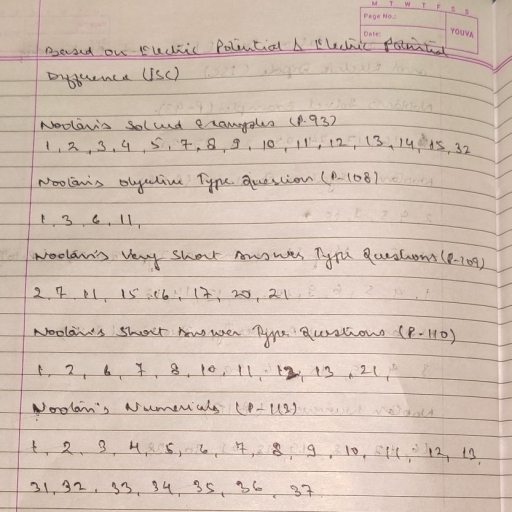 M T W T F S S
Page No.:
Date:
YOUVA
Based on Electric Potential & Electric Potential
Difference (ISC)
Nootan's Solved Examples (P-93)
1, 2, 3, 4, 5, 7, 8, 9, 10, 11, 12, 13, 14, 15, 32
Nootan's Objective Type Question (P-108)
1, 3, 6, 11,
Nootan's Very Short Answer Type Questions (P-109)
2, 7, 11, 15, 16, 17, 20, 21
Nootan's Short Answer Type Questions (P-110)
1, 2, 6, 7, 8, 10, 11, 12, 13, 21,
Nootan's Numericals (P-112)
1, 2, 3, 4, 5, 6, 7, 8, 9, 10, 11, 12, 13,
31, 32, 33, 34, 35, 36, 37